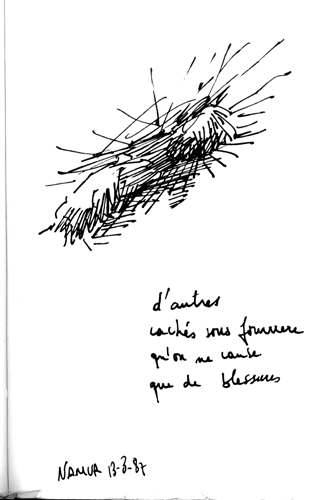 d'autres
cachés sous fourrure
qu'on ne cause
que de blessures
NAMUR 13-3-87